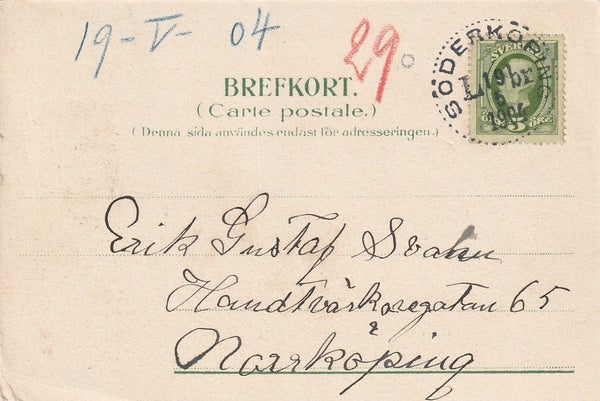 19-V-04
29
BREFKORT.
(Carte postale.)
(Denna sida användes endast för adresseringen.)
SVERIGE
5 ÖRE
SÖDERKÖPING
L 19 br
1904
Erik Gustaf Svahn
Handtvärkaregatan 65
Norrköping